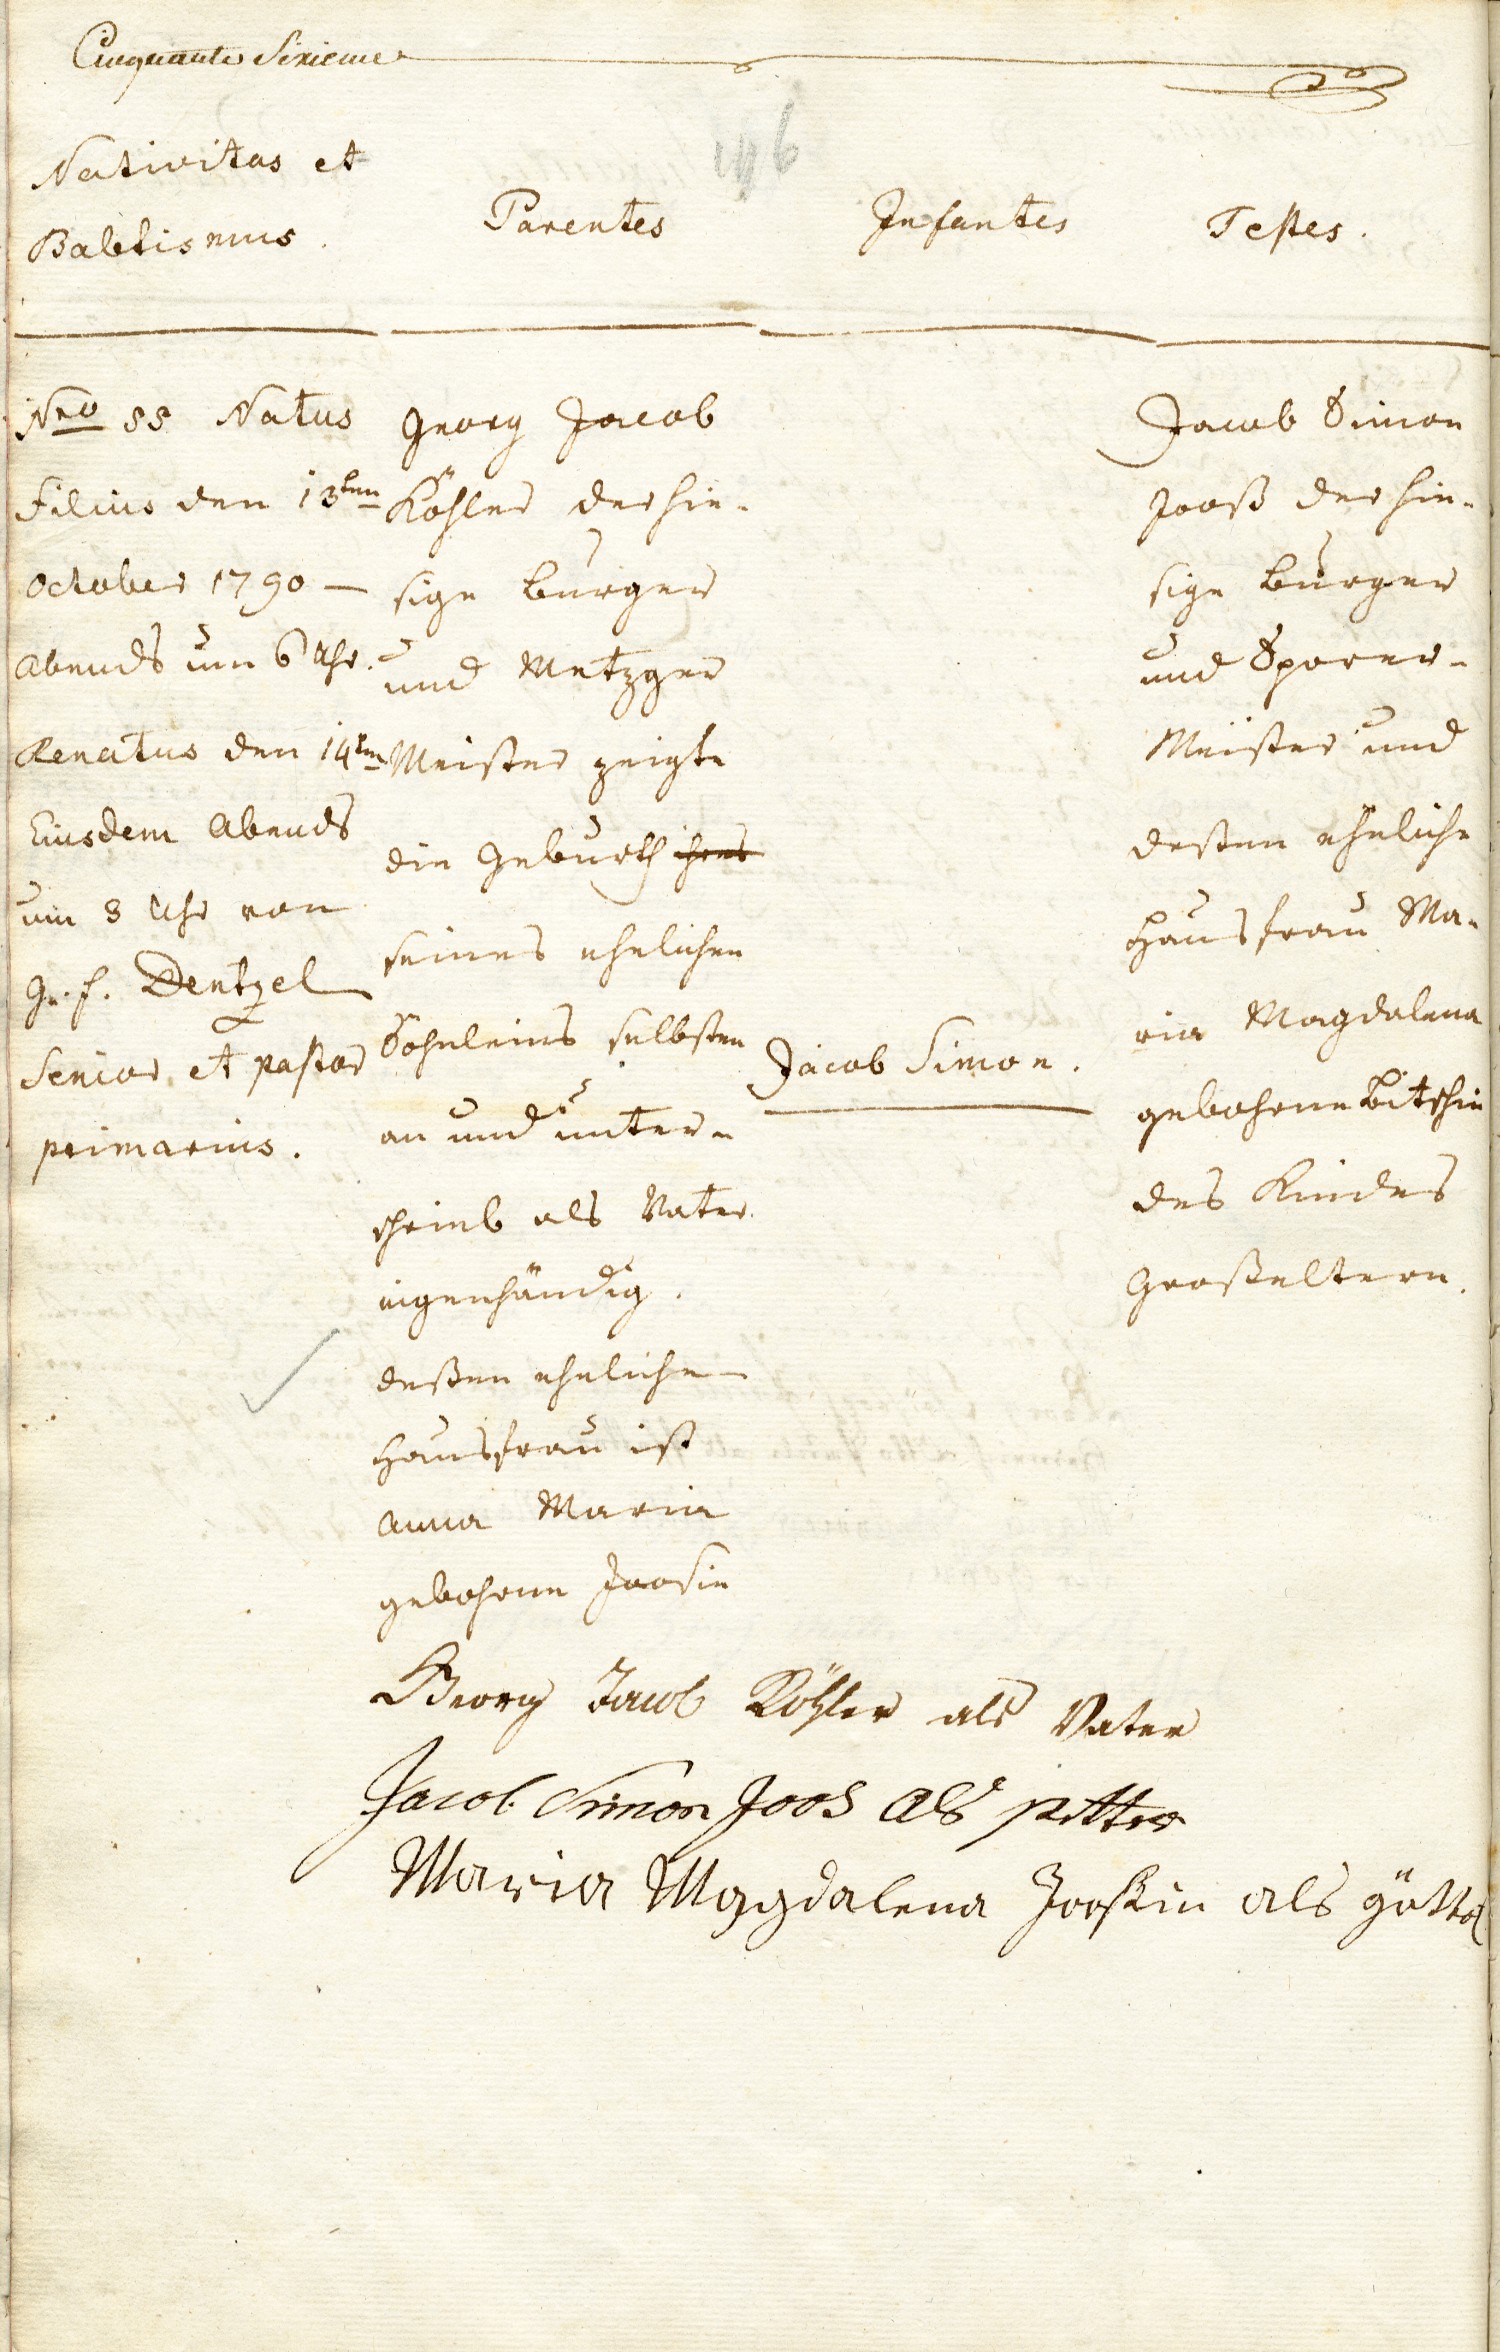 Cinquante Sixieme
146
Nativitas et
Babtismus.
Parentes
Infantes
Testes.
Nro 55 Natus
Filius den 13ten
October 1790 —
Abends um 6 Uhr.
Renatus den 14ten
Eiusdem Abends
um 3 Uhr von
G. F. Dentzel
Senior et pastor
primarius.
Georg Jacob
Köhler der hie-
sige Burger
und Metzger
Meister zeigte
die Geburth ihres
seines ehelichen
Söhnleins selbsten
an und unter-
schrieb als Vater
eigenhändig.
deßen eheliche
Hausfrau ist
Anna Maria
gebohrne Joosin
Jacob Simon.
Jacob Simon
Jooß der hie-
sige Burger
und Sporer-
Meister und
deßen eheliche
Hausfrau Ma-
ria Magdalena
gebohrne Bitschin
des Kindes
Großeltern.
Georg Jacob Köhler als Vater
Jacob Simon Joos als petter
Maria Maggdalena Jooßin als göttel